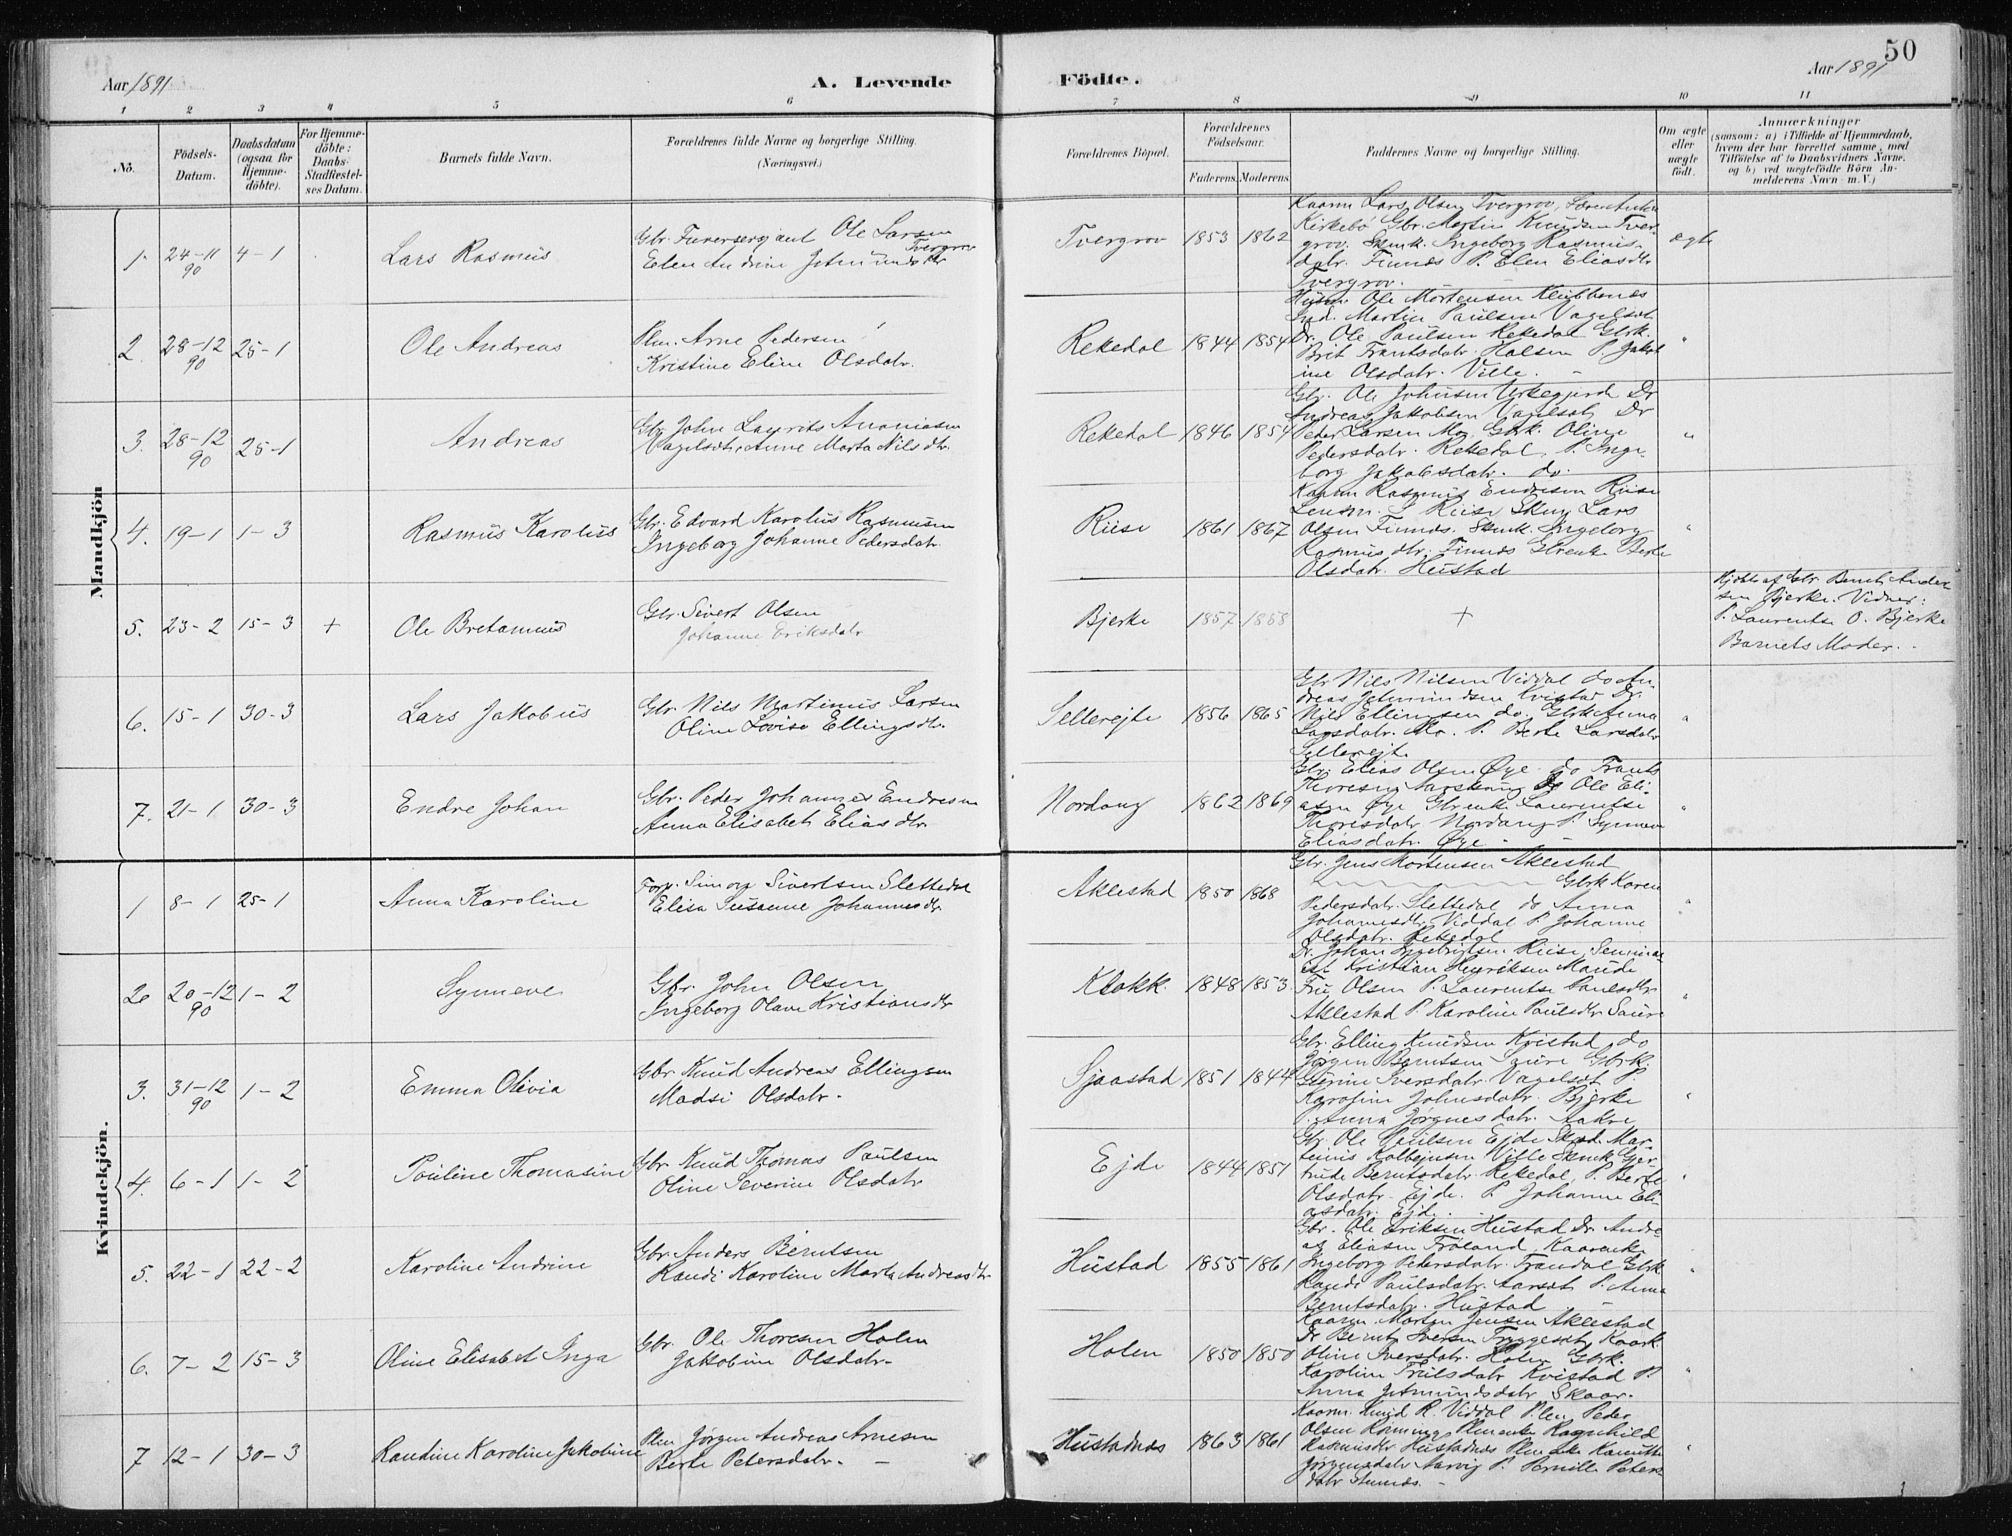 50
Aar 1891
A. Levende
Födte.
Aar 1891
1 2 3 4 5 6 7 8 9 10 11
No.
Födsels-
Datum.
Daabsdatum
(ogsaa for
Hjemme-
döbte).
For Hjemme-
döbte:
Daabs-
Stadfæstel-
ses Datum.
Barnets fulde Navn.
Forældrenes fulde Navne og borgerlige Stilling.
(Næringsvei.)
Forældrenes Böpæl.
Forældrenes
Födselsaar.
Faderens. Moderens.
Faddernes Navne og borgerlige Stilling.
Om ægte
eller
uægte
födt.
Anmærkninger
(saasom: a) i Tilfælde af Hjemmedaab,
hvem der har forrettet samme, med
Tilföielse af to Daabsvidners Navne.
og b) ved uægtefödte Börn An-
melderens Navn m. V.)
Mandkjön
1. 24-11 90 4-1
Lars Rasmus
Gbr. Furersergiant Ole Larsen
Tvergrov
Elen Andrine Jetmundsdtr
Tvergrov 1853 1862
Kaarm Lars Olsen Tvergrov,
Kirkebö Gbr. Martin Knudsen Tver-
grov. Skmk. Ingeborg Rasmus-
datr. Finnæs P. Elen Eliasdtr
Tvergrov.
ægte
2. 28-12 90 25-1
Ole Andreas
Plm. Arne Pedersen
Kristine Eline Olsdatr.
Rekedal 1844 1854
Husm. Ole Mortensen Klubbenæs
Ind. Martin Paulsen Vagelsæt
Dr. Ole Paulsen Rekedal Gbrk.
Brit Frantsdatr. Holsen P. Jakob
ine Olsdatr. Ville. -
"
3. 28-12 90 25-1
Andreas
Gbr. John Laurits Ananiasen
Vagelsæt, Anne Marta Nilsdtr.
Rekedal 1846 1854
Gbr. Ole Johnsen Urkegjerde Dr
Andreas Jakobsen Vagelsæt Dr
Peder Larsen Mo. Gbrk. Oline
Pedersdatr. Rekedal P. Inge-
borg Jakobsdatr. do.
"
4. 19-1 1-3
Rasmus Karolius
Gbr. Edvard Karolius Rasmusen
Ingeborg Johanne Pedersdatr.
Riise 1861 1867
Kaarm Rasmus Endresen Riise
Lensm. S Riise Skm Lars
Olsen Finnæs. Skmk. Ingeborg
Rasmusdtr. Finnæs Gbrenk. Berte
Olsdatr. Hustad
"
5. 23-2 15-3 +
Ole Bretanius
Gbr. Sivert Olsen
Johanne Eriksdatr
Bjerke 1857 1858
+
Hjdbt af Gbr Bernt Ander-
sen Bjerke. Vidner:
P. Laurentse O. Bjerke
Barnets Moder.
6. 15-1 30-3
Lars Jakobus
Gbr. Nils Martinus Larsen
Oline Lovise Ellingsdtr.
Sellereite 1856 1865
Gbr Nils Nilsen Viddal do An-
dreas Jetmundsen Kvistad Dr.
Nils Ellingsen do. Gbrk Anna
Larsdatr. Mo. P. Berte Larsdatr
Sellereit.
"
7. 21-1 30-3
Endre Johan
Gbr. Peder Johannes Endresen
Anna Elisabet Eliasdtr.
Nordang 1862 1869
Gbr. Elias Olsen Øye do Frants
Thoresen Dr Ole Eli-
asen Øye Gbrenk Laurentse
Thoresdatr Nordang P. Synneve
Eliasdatr. Øye -
"
Kvindekjön.
1 8-1 25-1
Anna Karoline
Forp. Simon Sivertsen Slettedal
Elisa Susanne Johannesdtr.
Aklestad 1850 1868
Gbr. Jens Mortensen Aklestad
Gbrk Karen
Pedersdatr. Slettedal do Anna
Johannesdtr. Viddal P. Johanne
Olsdatr. Rekedal
"
2. 20-12 90 1-2
Synneve
Gbr. John Olsen
Ingeborg Olave Kristiansdtr
Klokk. 1848 1853
Dr. Johan Riise, Seminar
ist Kristian Henriksen Maude
Fru Olsen P. Laurentse Paulsdtr
Aklestad P. Karoline Paulsdtr Saure
"
3. 31-12 90 1-2
Emma Olivia
Gbr. Knud Andreas Ellingsen
Madsi Olsdatr.
Sjaastad 1851 1844
Gbr. Elling Knudsen Kvistad do
Jørgen Berntsen Saure Gbrk.
Gurine Iversdatr. Vagelsæt P.
Karoline Johnsdatr. Bjerke
P. Anna Jørgnesdatr. Aakre
"
4. 6-1 1-2
Pauline Thomasine
Gbr. Knud Thomas Paulsen
Oline Severine Olsdatr
Ejde 1844 1851
Gbr. Ole Paulsen Ejde Skm. Mar-
tinus Kolbejnsen Ville Skmk. Gjer-
trude Berntsdatr. Rekedal, P. Berte
Olsdatr. Ejde. P. Johanne Eli-
asdatr. Ejd.
"
5. 22-1 22-2
Karoline Andrine
Gbr. Anders Berntsen
Randi Karoline Marta Andreasdtr.
Hustad 1855 1861
Gbr. Ole Eriksen Hustad Dr. Andre
as Eliasen Frøland Kaarenk.
Ingeborg Pedersdatr. Trandal Gbrk
Randi Paulsdatr. Aarset P. Anna
Berntsdatr. Hustad
"
6. 7-2 15-3
Oline Elisabet Inga
Gbr. Ole Thoresen Holen
Jakobine Olsdatr.
Holen 1850 1850
Kaarm Morten Jensen Aklestad
Dr Bernt Iversen Tryggestad Kaark.
Oline Iversdatr. Holen Gbrk.
Karoline Trulsdatr Kvistad P.
Anna Jetmundsdatr Skaar.
"
7 12-1 30-3
Randine Karoline Jakobine
Plm Jørgen Andreas Arnesen
Berte Petersdatr. -
Hustadnæs 1863 1861
Kaarm. Knud R. Viddal Plm. Peder
Olsen Plmenke Ragnhild
Rasmusdtr Hustadnæs Plm enke Kanutte
Jørgensdatr Aarvig P. Pernille Peters
datr Finnæs. -
"